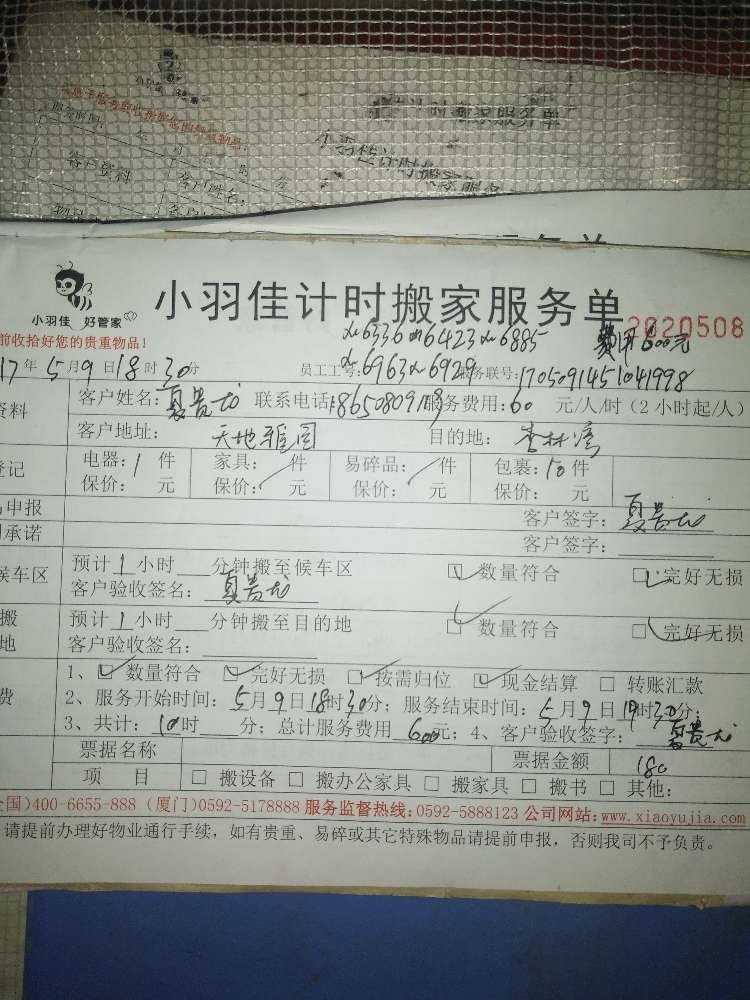 计时搬家服务单
客户资料
客户姓名:
小羽佳 好管家
小羽佳计时搬家服务单
2020508
前收拾好您的贵重物品!
6336 6423 6885 费用600元
17年5月9日18时30分 员工工号: 6963 6929 服务联号:1705091451041998
资料 客户姓名: 夏贵龙 联系电话: 服务费用:60 元/人/时(2小时起/人)
客户地址: 天地雅园 目的地: 杏林湾
登记 电器:1 件 家具: 件 易碎品: 件 包裹:10件
保价: 元 保价: 元 保价: 元 保价: 元
申报 客户签字: 夏贵龙
承诺 客户签字:
候车区 预计1小时 分钟搬至候车区 数量符合 完好无损
客户验收签名: 夏贵龙
搬 预计1小时 分钟搬至目的地 数量符合 完好无损
地 客户验收签名:
1、 数量符合 完好无损 按需归位 现金结算 转账汇款
费 2、服务开始时间: 5月9日18时30分; 服务结束时间: 5月9日19时30分;
3、共计: 10时 分; 总计服务费用 600元; 4、客户验收签字: 夏贵龙
票据名称 票据金额 180
项 目 搬设备 搬办公家具 搬家具 搬书 其他:
全国)400-6655-888 (厦门)0592-5178888 服务监督热线:0592-5888123 公司网站:www.xiaoyujia.com
请提前办理好物业通行手续,如有贵重、易碎或其它特殊物品请提前申报,否则我司不予负责。